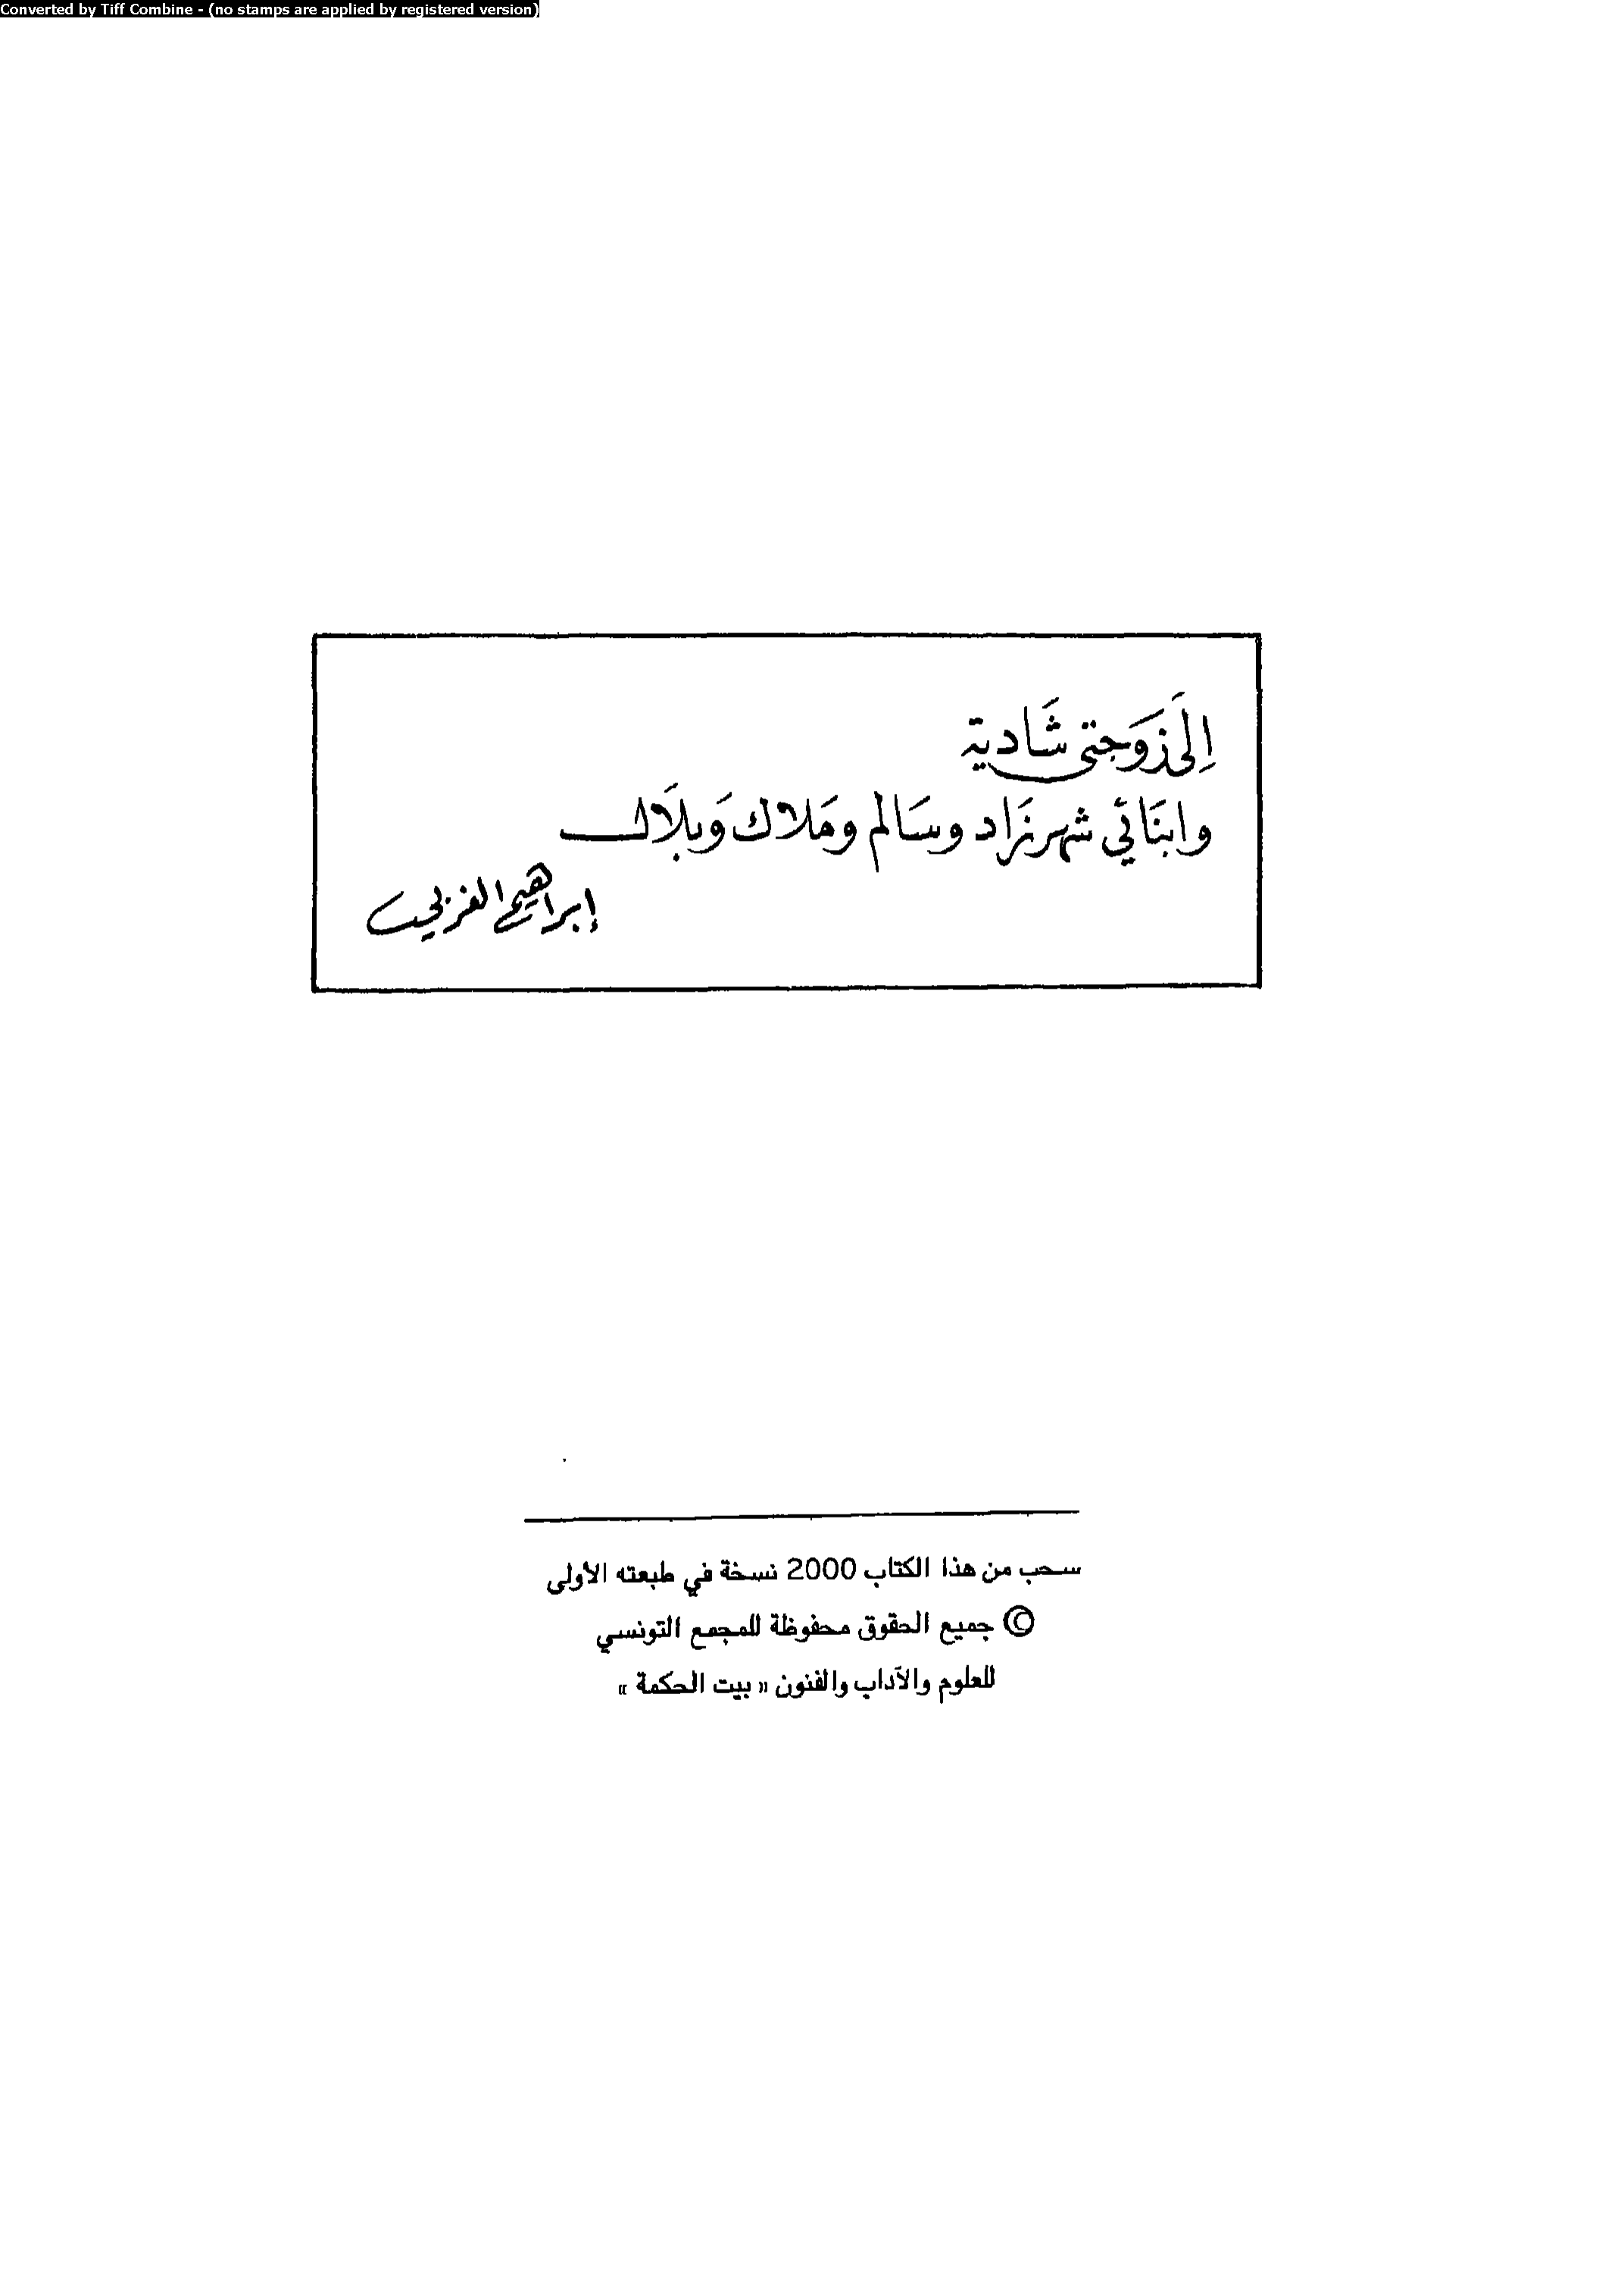 Converted by Tiff Combine - (no stamps are applied by registered version)
إلَى زَوجَتي شَادية
وابنَائي شهرزَاد وسَالم ومَلاك وَبلَال
إبراهيم الغربي
سحب من هذا الكتاب 2000 نسخة في طبعته الأولى
© جميع الحقوق محفوظة للمجمع التونسي
للعلوم والآداب والفنون « بيت الحكمة »